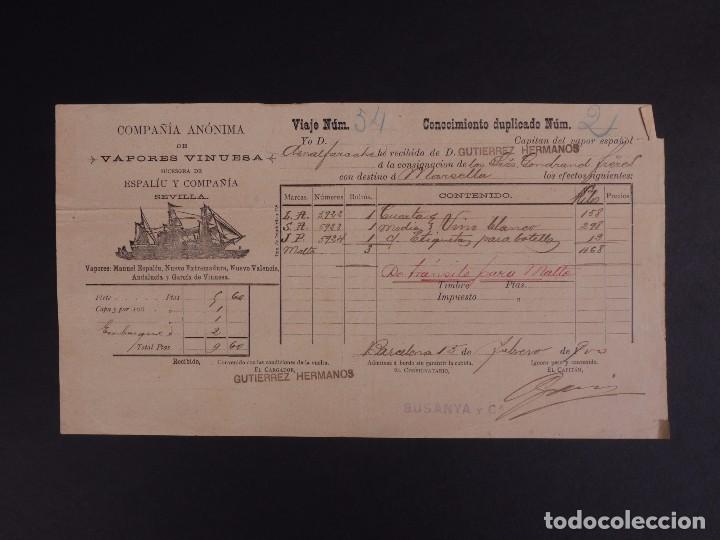 COMPAÑÍA ANÓNIMA
DE
VAPORES VINUESA
SUCESORA DE
ESPALÍU Y COMPAÑÍA
SEVILLA.
Vapores: Manuel Espalíu, Nuevo Extremadura, Nuevo Valencia,
Andalucía y García de Vinuesa.
Flete Ptas 5 60
Capa y por 100 1
1
Embarque 2
Total Ptas 9 60
Viaje Núm. 54 Conocimiento duplicado Núm. 2
Yo D. Capitan del vapor español
Aznalfarache hé recibido de D. GUTIERREZ HERMANOS
á la consignacion de los Sres. frères
con destino á Marsella los efectos siguientes:
Marcas. Números Bultos. CONTENIDO. Kilos Precios
L. A. 5922 1 Cuarta y 158
S. A. 5923 1 Media Vino blanco 298
J P. 5924 1 c/ Etiquetas para botella 12
Malta 3 468
De tránsito para Malta
Timbre Ptas.
Impuesto "
Barcelona 15 de Febrero de 900
Recibido, Convenido con las condiciones de la vuelta. Admitase á bordo sin garantir la cabida. Ignoro peso y contenido.
EL CARGADOR, EL CONSIGNATARIO, EL CAPITÁN,
GUTIERREZ HERMANOS
BUSANYA Y Cª
todocoleccion
todocoleccion.net